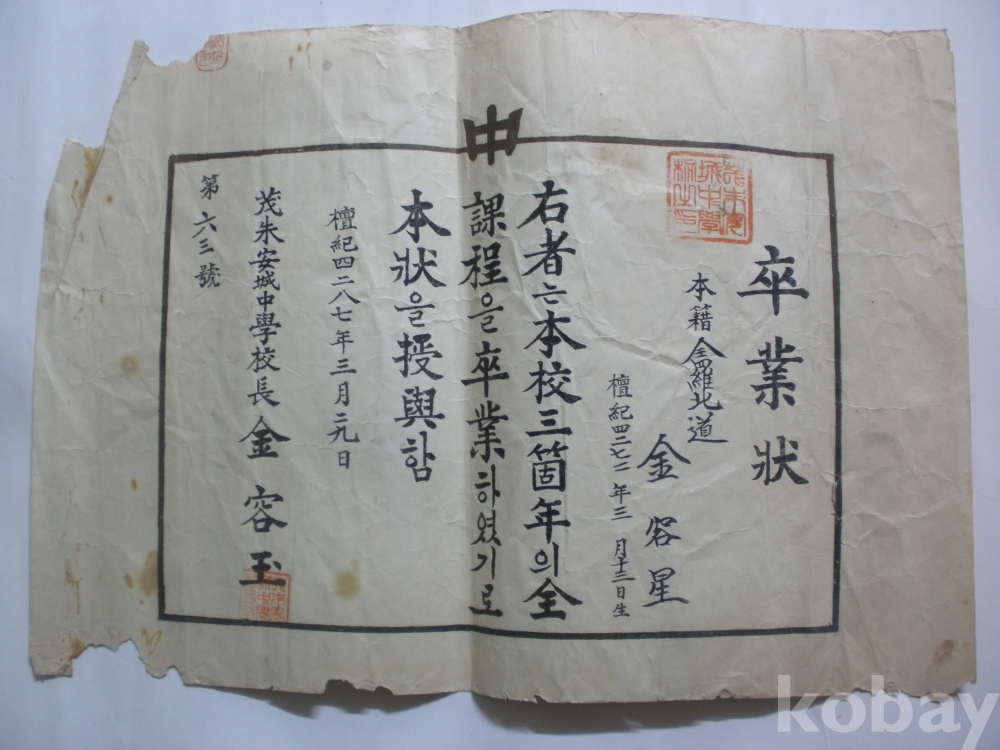 卒業狀
本籍 全羅北道
金容星
檀紀四二七二年三月十三日生
右者는本校三箇年의全
課程을卒業하였기로
本狀을授與함
檀紀四二八七年三月二九日
茂朱安城中學校長 金容玉
第六三號
中
kobay